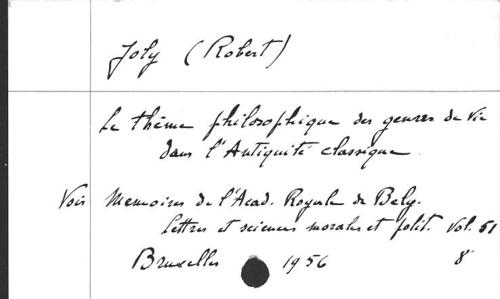 Joly (Robert)
Le thème philosophique des genres de vie
dans l'Antiquité classique.
Vois Memoires de l'Acad. Royale de Belg.
Lettres et sciences morales et polit. Vol. 51
Bruxelles 1956 8°